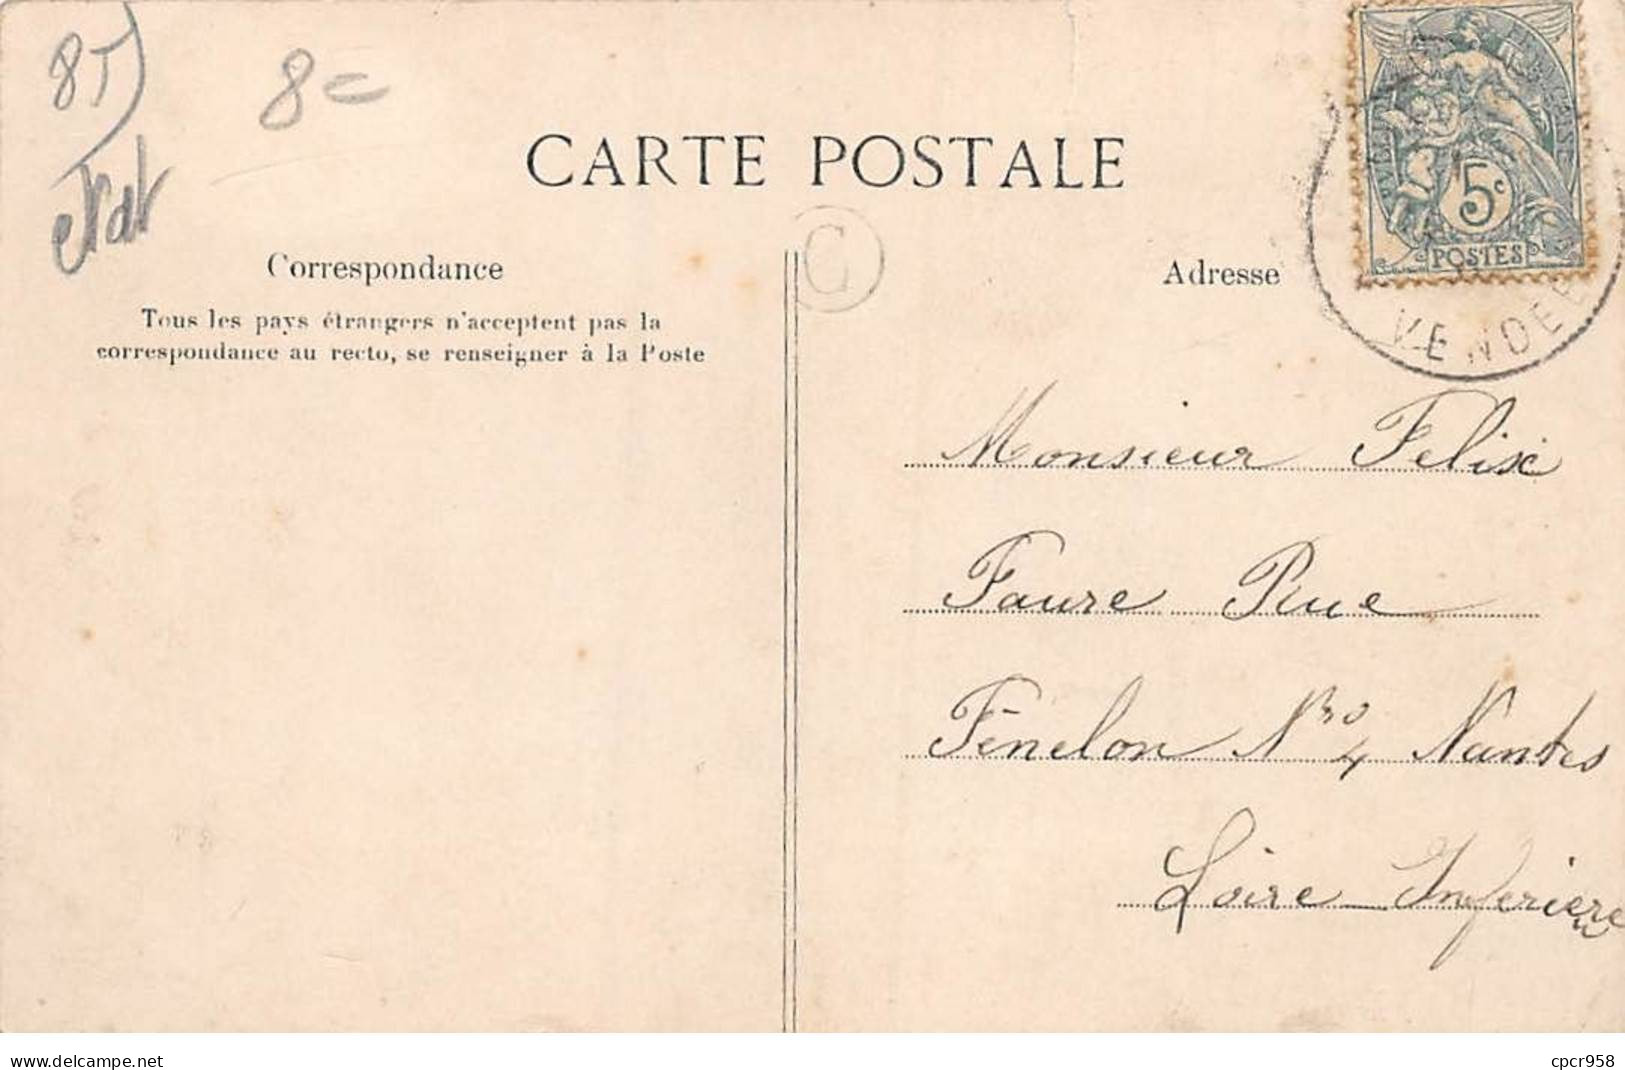 85
8=
CARTE POSTALE
5c
POSTES
C
Correspondance
Adresse
VENDEE
Tous les pays étrangers n'acceptent pas la
correspondance au recto, se renseigner à la Poste
Monsieur Felix
Faure Rue
Fénelon Nro 4 Nantes
Loire Inferieure
www.delcampe.net
cpcr958